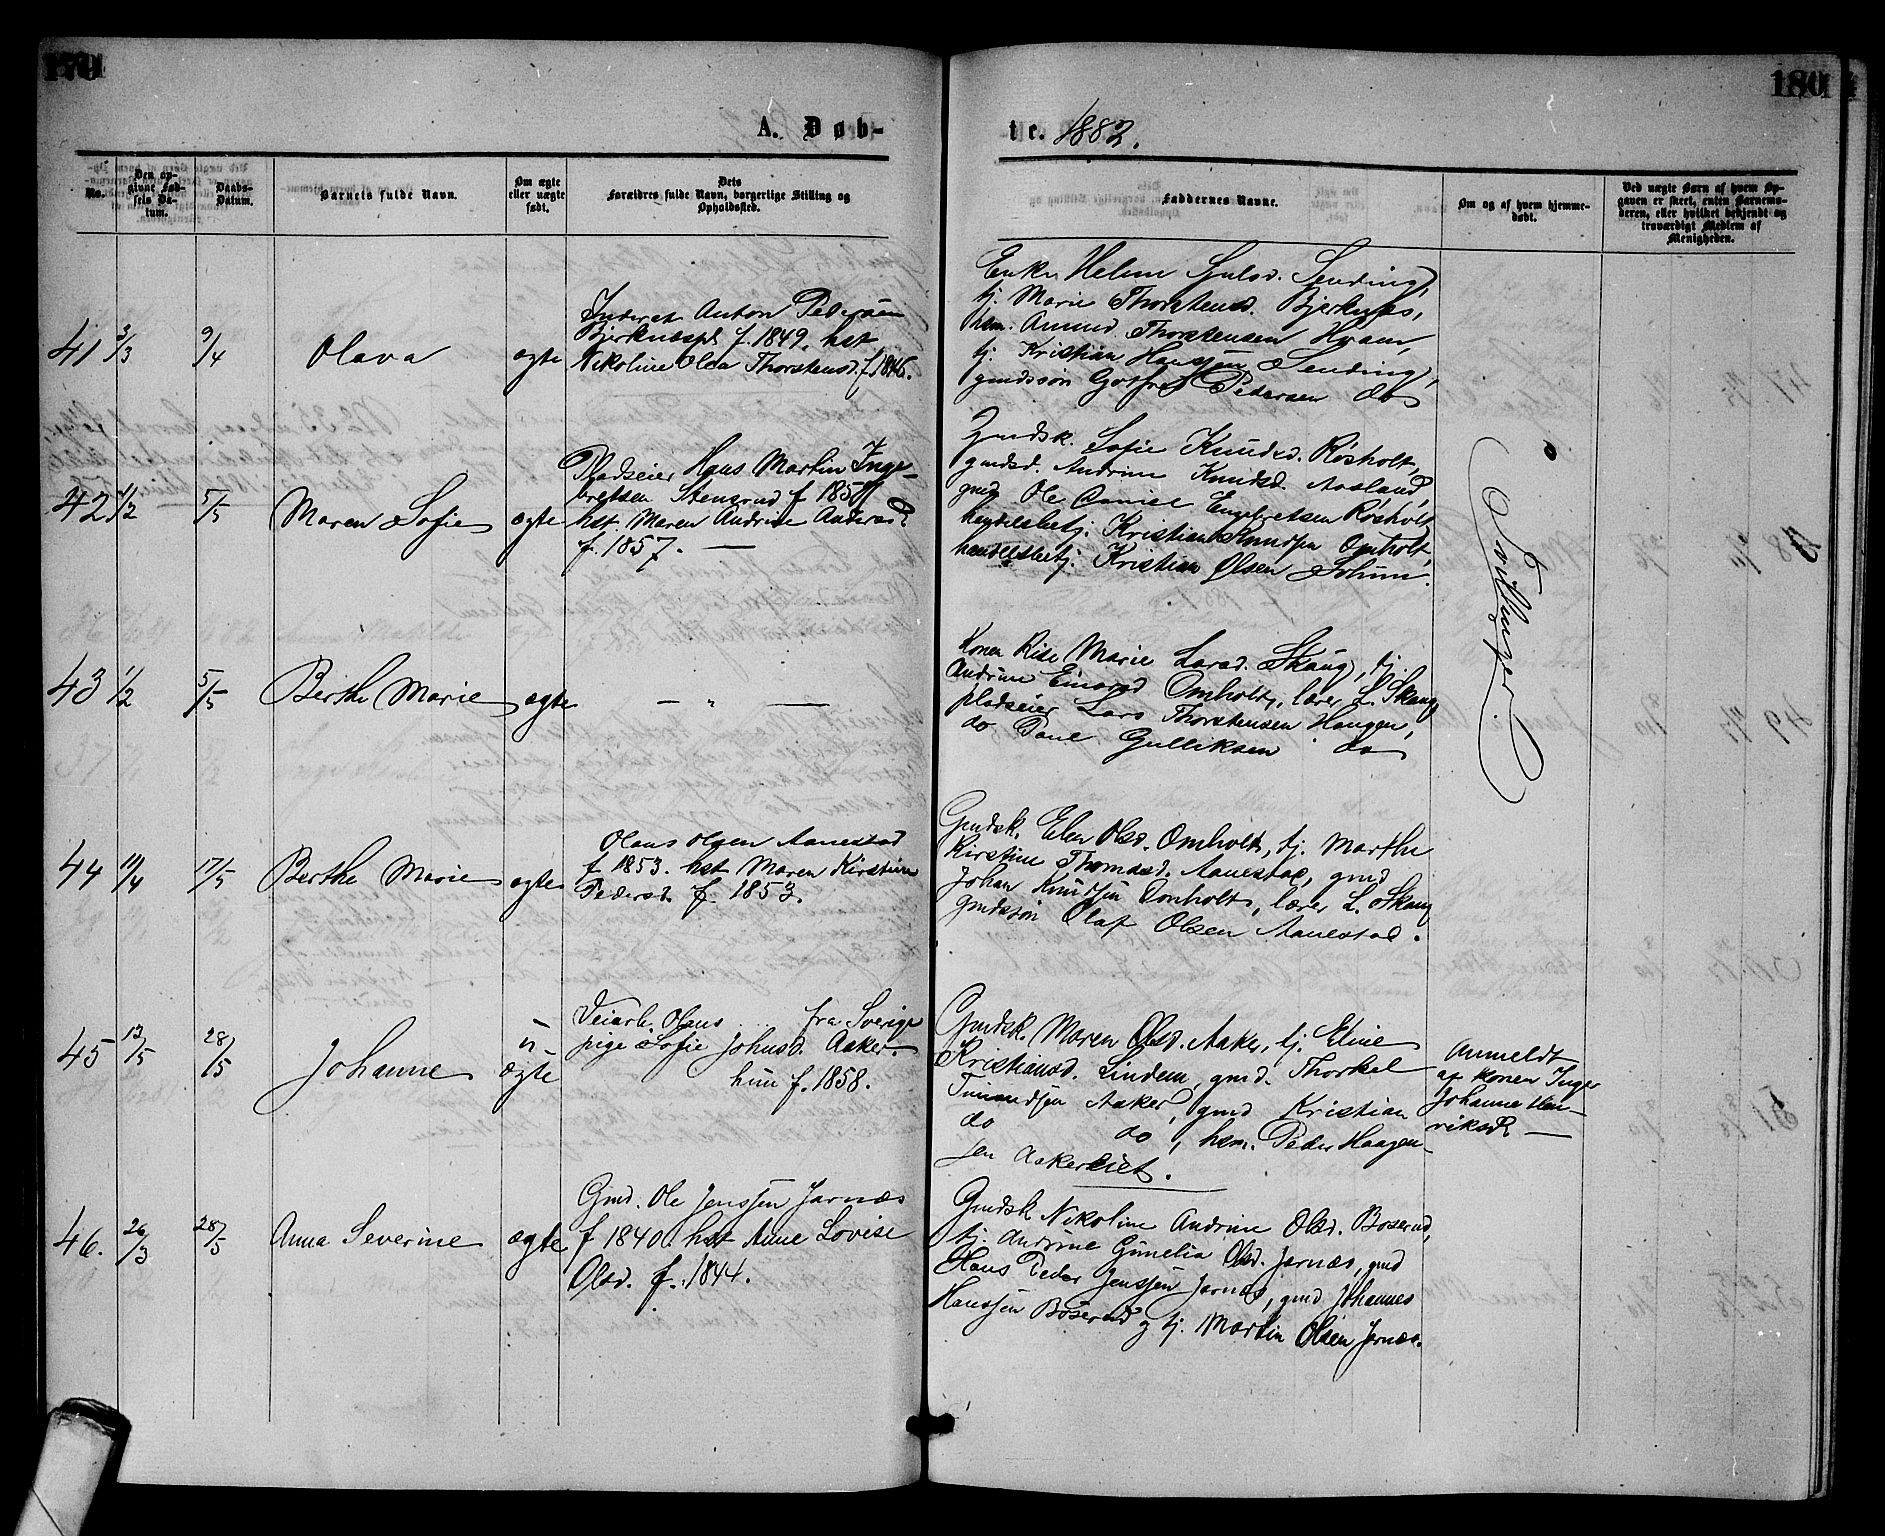 180
A. Døb-
te. 1882.
No.
Den op-
givne Fød-
sels Da-
tum.
Daabs-
Datum.
Barnets fulde Navn.
Om ægte
eller uægte
født.
Dets
Forældres fulde Navn, borgerlige Stilling og
Opholdssted.
Faddernes Navne.
Om og af hvem hjemme-
døbt.
Ved uægte Børn af hvem Op-
gaven er skeet, enten Barnemo-
deren, eller hvilket bekjendt og
troværdigt Medlem af
Menigheden.
41 3/3 9/4 Olava ægte
Inderst Anton Pedersen
Bjerknæspl f. 1849. hst
Nikoline Olea Thorstensd. f. 1846.
Enke Helene Sending,
tj. Marie Thorstensd. Bjerknæs,
hsm. Amund Thorstensen Hvam,
tj. Kristian Hanssen Sending,
gmdssøn Gotfred Pedersen do
42 1/2 5/5 Maren Sofie ægte
Pladseier Hans Martin Inge-
bretsen Stensrud f. 185
hst Maren Andrine Andersd
f. 1857. —
Gmdsk. Sofie Knudsd. Røsholt,
gmdsd. Andrine Knudsd. Aasland,
gmd Ole Daniel Engebretsen Røsholt,
handelsbetj. Kristian Knudsen Omholt,
handelsbetj. Kristian Olsen Solum.
43 1/2 5/5 Berthe Marie ægte — " —
Konen Rise Marie Larsd. Skaug, tj.
Andrine Einarsd Omholt, lærer L. Skaug
pladseier Lars Thorstensen Haugen,
do Paul Gulliksen do
44 11/4 17/5 Berthe Marie ægte
Olaus Olsen Aanestad
f 1853. hst Maren Kirstine
Pedersd. f. 1853.
Gmdsk. Elen Olsd. Omholt, tj. Marthe
Kirstine Thomasd. Aanestad, gmd
Johan Knudsen Omholt, lærer L. Skaug
gmdssøn Olaf Olsen Aanestad.
45 13/5 28/5 Johanne u-
ægte
Veiarb. Olaus ... fra Sverige
pige Sofie Johnsd. Aaker.
hun f. 1858.
Gmdsk. Maren Olsd. Aaker, tj. Eline
Kristiansd. Lindem, gmd. Thorkel
Aaker, gmd Kristian
do do, hsm. Peder Haagen-
sen Aakereiet.
Anmeldt
af konen Inger
Johanne Hen-
riksd —
46. 26/3 28/5 Anna Severine ægte
Gmd. Ole Jenssen Jarnæs
f 1840. hst Anne Lovise
Olsd. f. 1844.
Gmdsk Nikoline Andrine Olsd. Boserud,
tj. Andrine Gunelia Olsd. Jarnæs, gmd
Hans Peder Jenssen Jarnæs, gmd Johannes
Hanssen Boserud og tj. Martin Olsen Jarnæs.